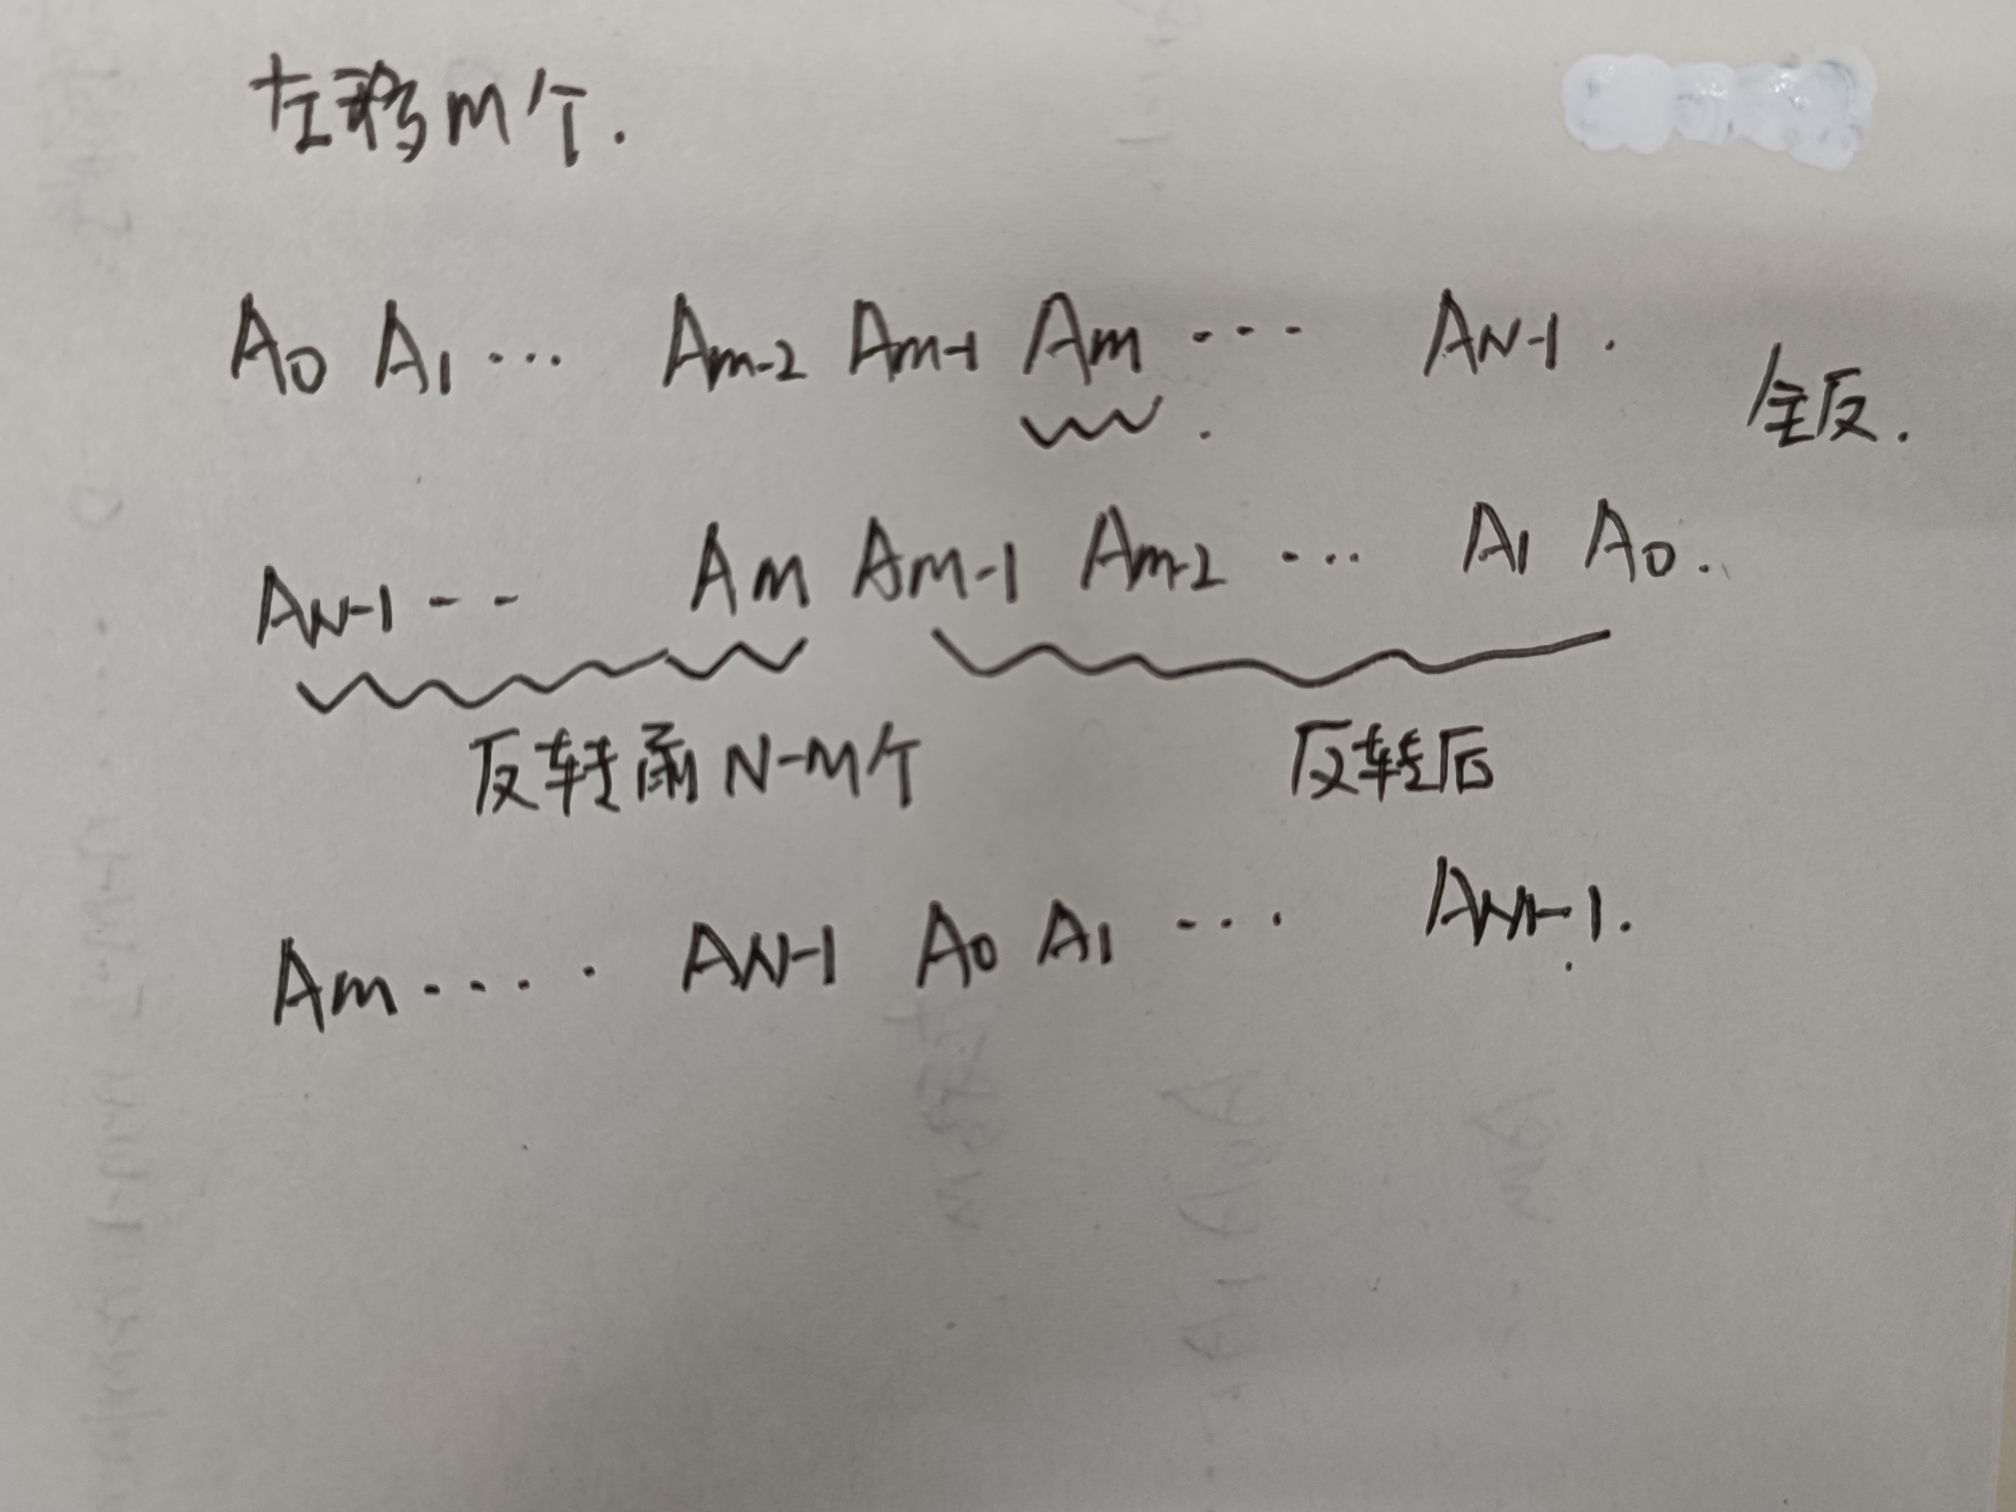 左移m个.
A0 A1 ... Am-2 Am-1 Am ... AN-1.
全反.
AN-1 -- Am Am-1 Am-2 ... A1 A0.
反转前N-M个 反转后
Am ..... AN-1 A0 A1 ...